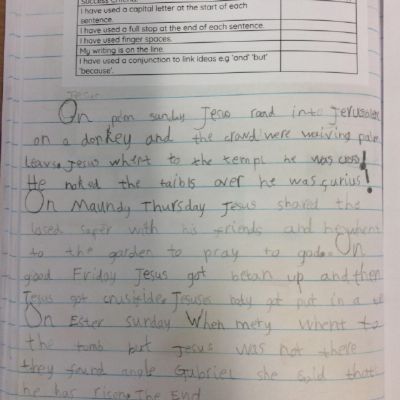 Success Criteria:
I have used a capital letter at the start of each
sentence.
I have used a full stop at the end of each sentence.
I have used finger spaces.
My writing is on the line.
I have used a conjunction to link ideas e.g 'and' 'but'
'because'.
Jesus
On pam sunday Jesus road into Jerusalem
on a donkey and the crawd were waiving palm
leavs. Jesus whent to the templ he was cross!
He noked the taibls over he was furius!
On Maundy Thursday Jesus shared the
lased super with his friends and he whent
to the garden to pray to god. On
good Friday Jesus got betan up and then
Jesus got crusifide. Jesuses body got put in a
On Ester sunday When mery whent to
the tomb but Jesus was not there
they found angle Gabriel she said that
he has rison. The End